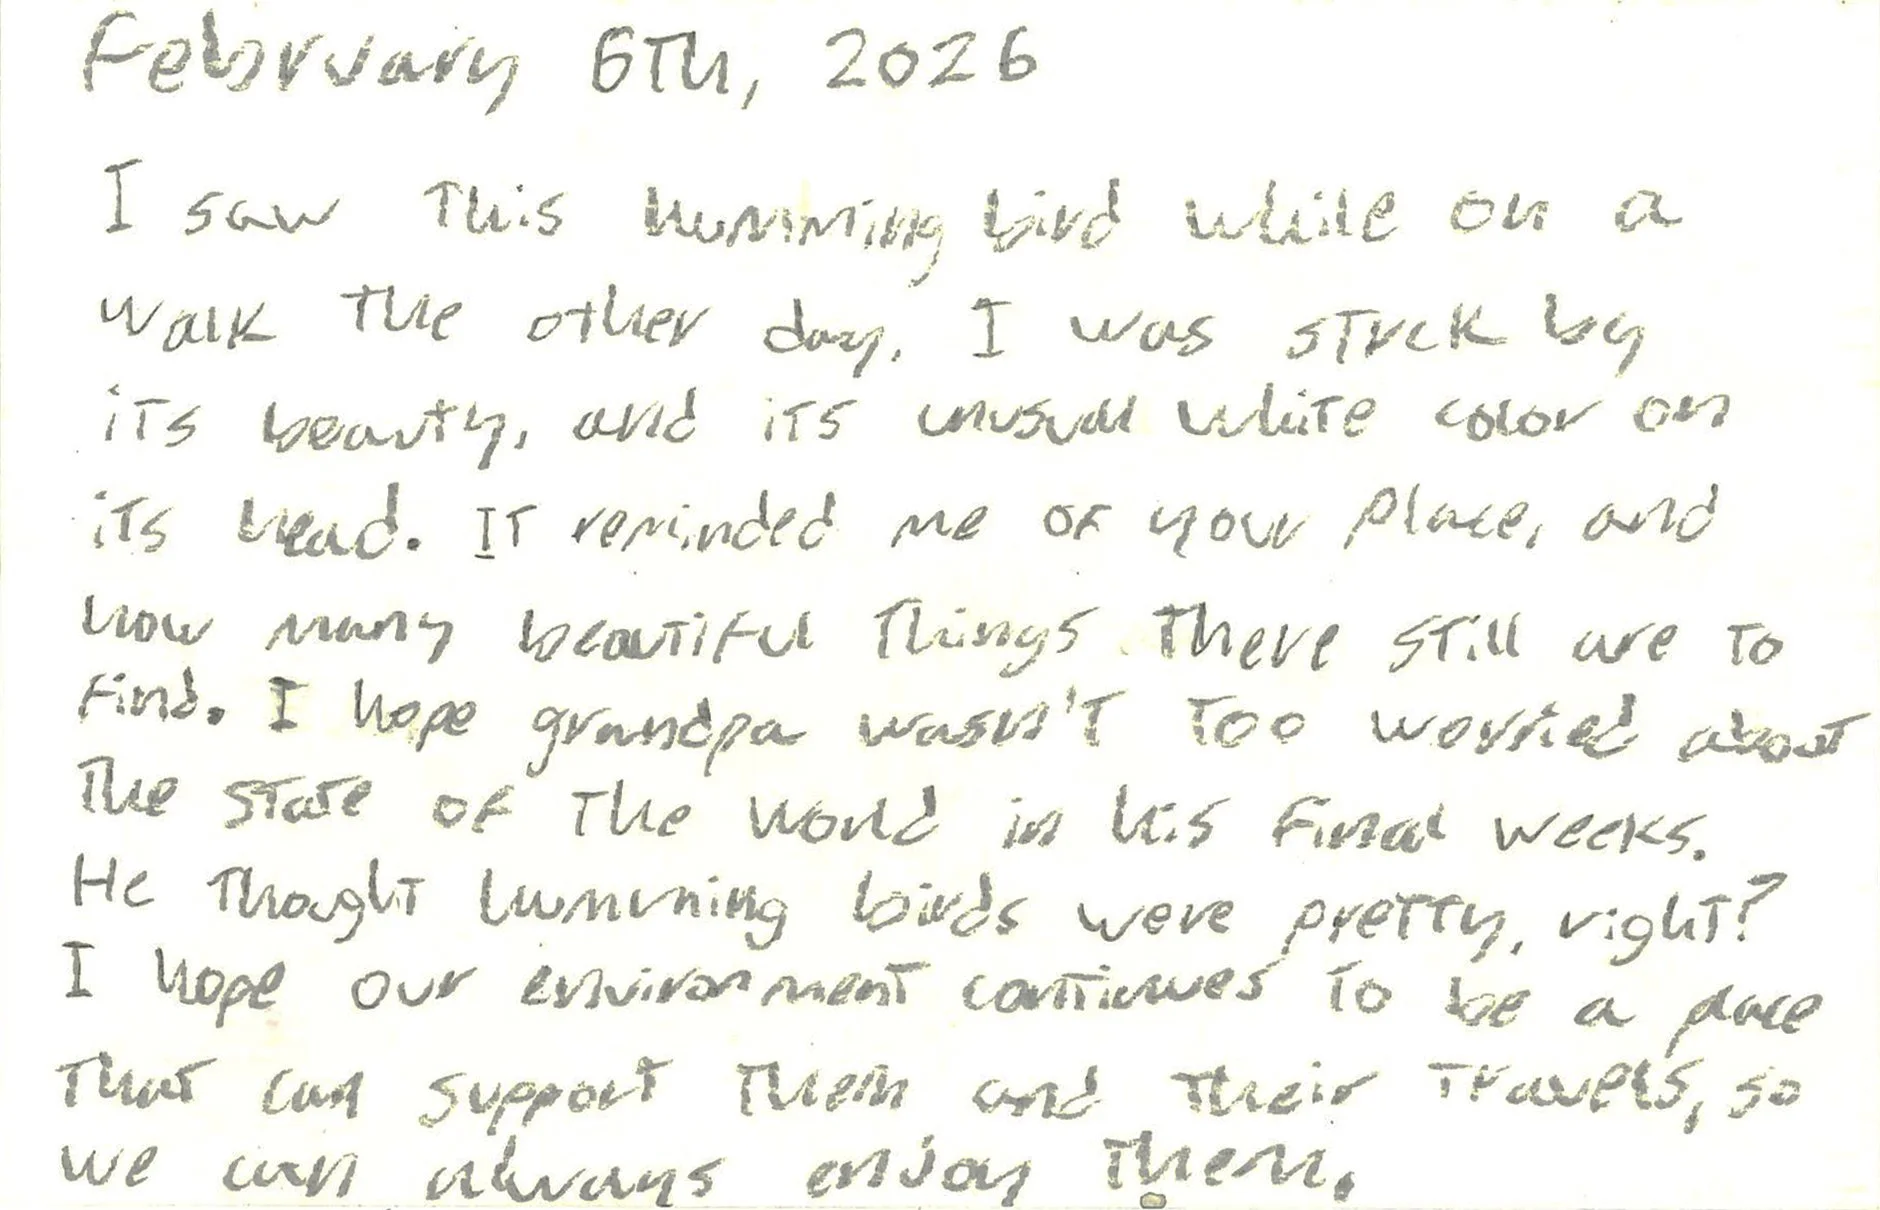 February 6Th, 2026
I saw This humming bird while on a
walk the other day. I was struck by
its beauty, and its unusual white color on
its head. It reminded me of your place, and
how many beautiful Things There still are to
find. I hope grandpa wasn't too worried about
The state of The world in his final weeks.
He Thought humming birds were pretty, right?
I hope our environment continues to be a place
That can support Them and Their Travels, so
we can always enjoy Them.